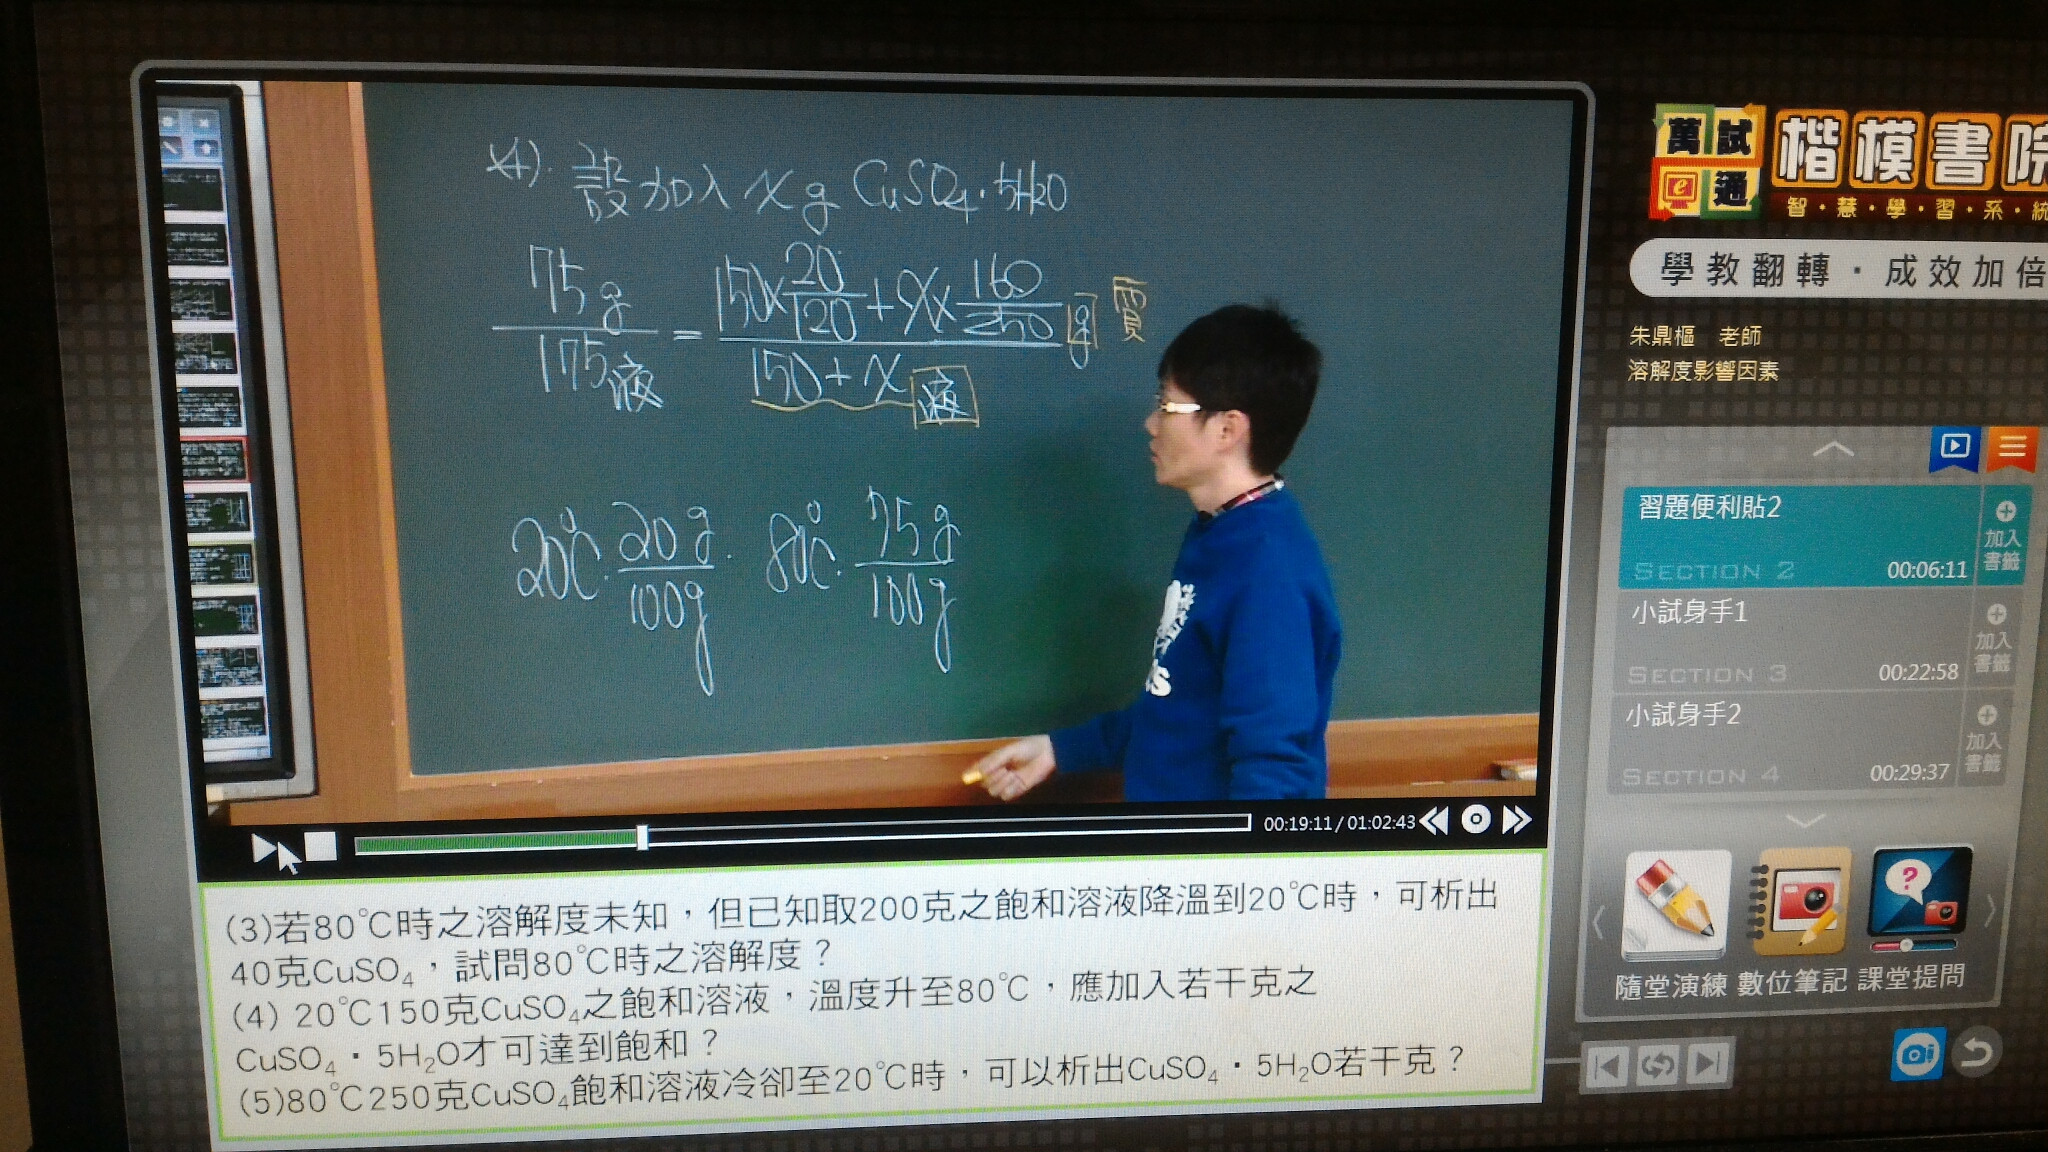 (4). 設加入 x g CuSO4·5H2O
75g/175液 = (150×20/120+x×160/250 g 質)/(150+x 液)
20℃. 20g/100g. 80℃. 75g/100g
00:19:11/01:02:43
(3)若80℃時之溶解度未知，但已知取200克之飽和溶液降溫到20℃時，可析出
40克CuSO₄，試問80℃時之溶解度？
(4) 20℃150克CuSO₄之飽和溶液，溫度升至80℃，應加入若干克之
CuSO₄・5H₂O才可達到飽和？
(5)80℃250克CuSO₄飽和溶液冷卻至20℃時，可以析出CuSO₄・5H₂O若干克？
萬試e通
楷模書院
智・慧・學・習・系・統
學教翻轉・成效加倍
朱鼎樞 老師
溶解度影響因素
習題便利貼2
加入書籤
SECTION 2 00:06:11
小試身手1
加入書籤
SECTION 3 00:22:58
小試身手2
加入書籤
SECTION 4 00:29:37
隨堂演練 數位筆記 課堂提問